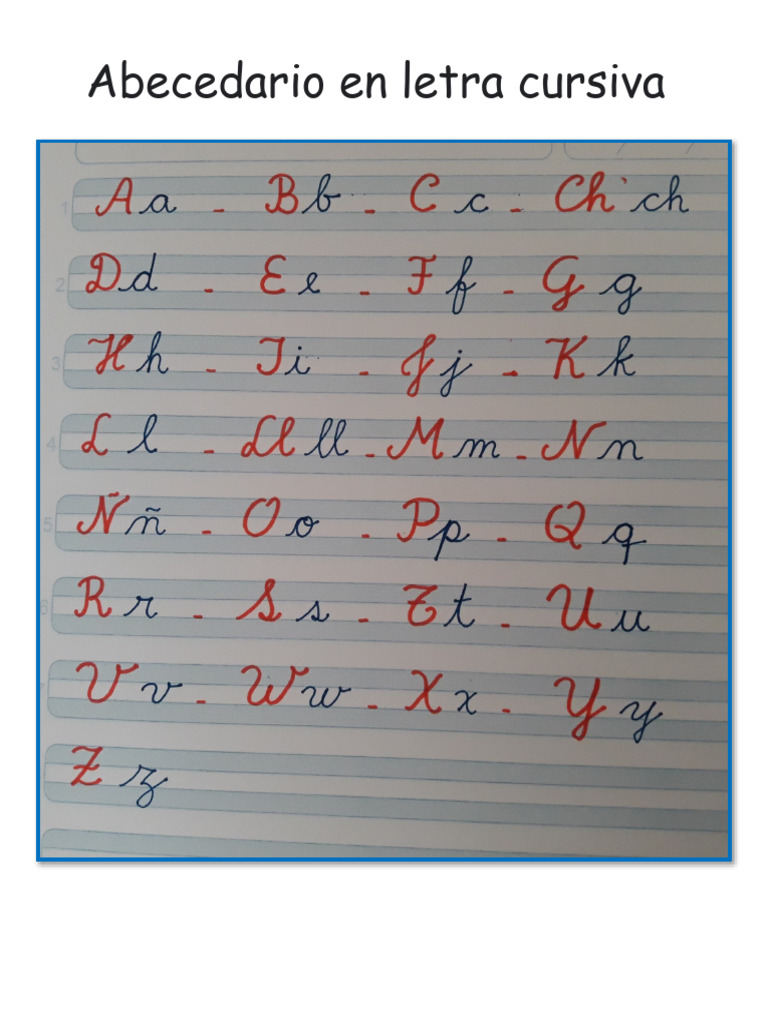 Abecedario en letra cursiva
1 A a - B b - C c - Ch ch
2 D d - E e - F f - G g
3 H h - I i - J j - K k
4 L l - Ll ll - M m - N n
5 Ñ ñ - O o - P p - Q q
6 R r - S s - T t - U u
V v - W w - X x - Y y
Z z